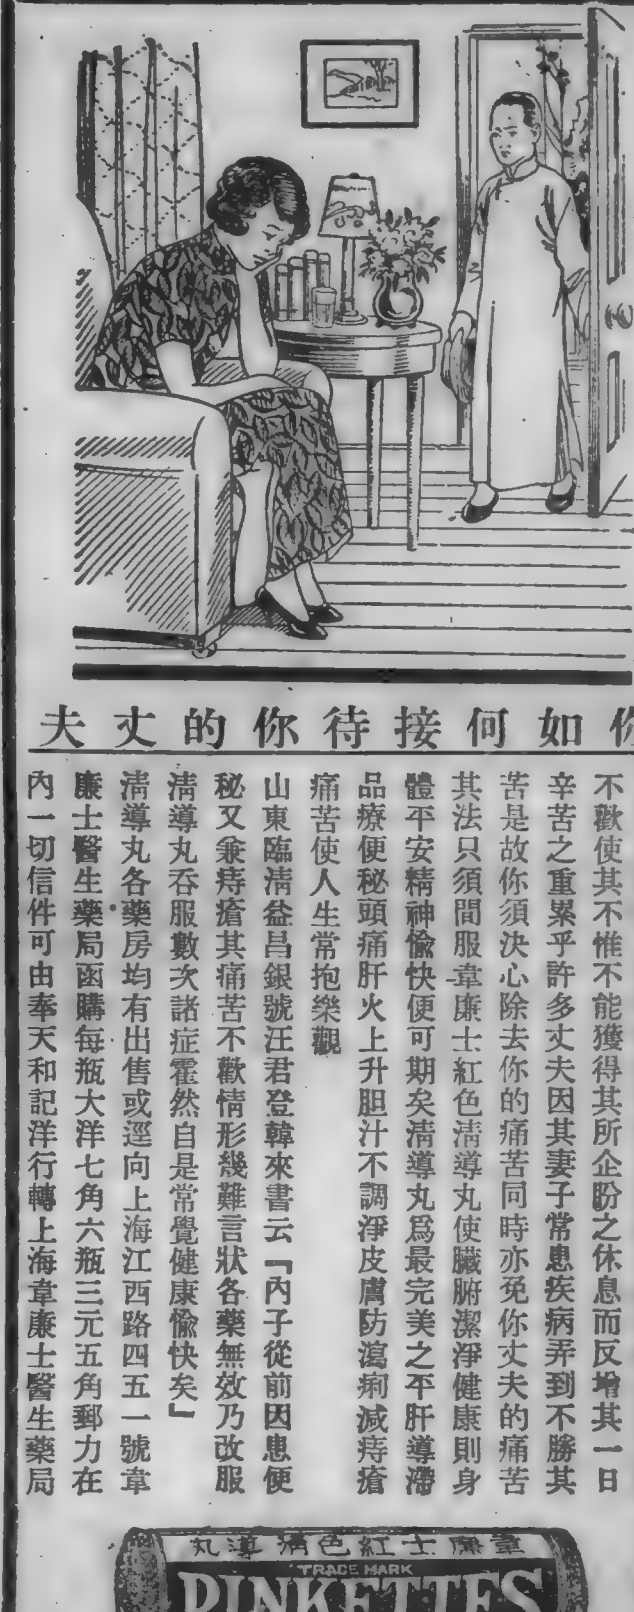 你如何接待你的丈夫
不歡使其不惟不能獲得其所企盼之休息而反增其一日
辛苦之重累乎許多丈夫因其妻子常患疾病弄到不勝其
苦是故你須決心除去你的痛苦同時亦免你丈夫的痛苦
其法只須間服韋廉士紅色淸導丸使臟腑潔淨健康則身
體平安精神愉快便可期矣淸導丸爲最完美之平肝導滯
品療便秘頭痛肝火上升胆汁不調淨皮膚防瀉痢減痔瘡
痛苦使人生常抱樂觀
山東臨淸益昌銀號汪君登韓來書云『內子從前因患便
秘又兼痔瘡其痛苦不歡情形幾難言狀各藥無效乃改服
淸導丸吞服數次諸症霍然自是常覺健康愉快矣』
淸導丸各藥房均有出售或逕向上海江西路四五一號韋
廉士醫生藥局函購每瓶大洋七角六瓶三元五角郵力在
內一切信件可由奉天和記洋行轉上海韋廉士醫生藥局
韋廉士紅色淸導丸
TRADE MARK
PINKETTES